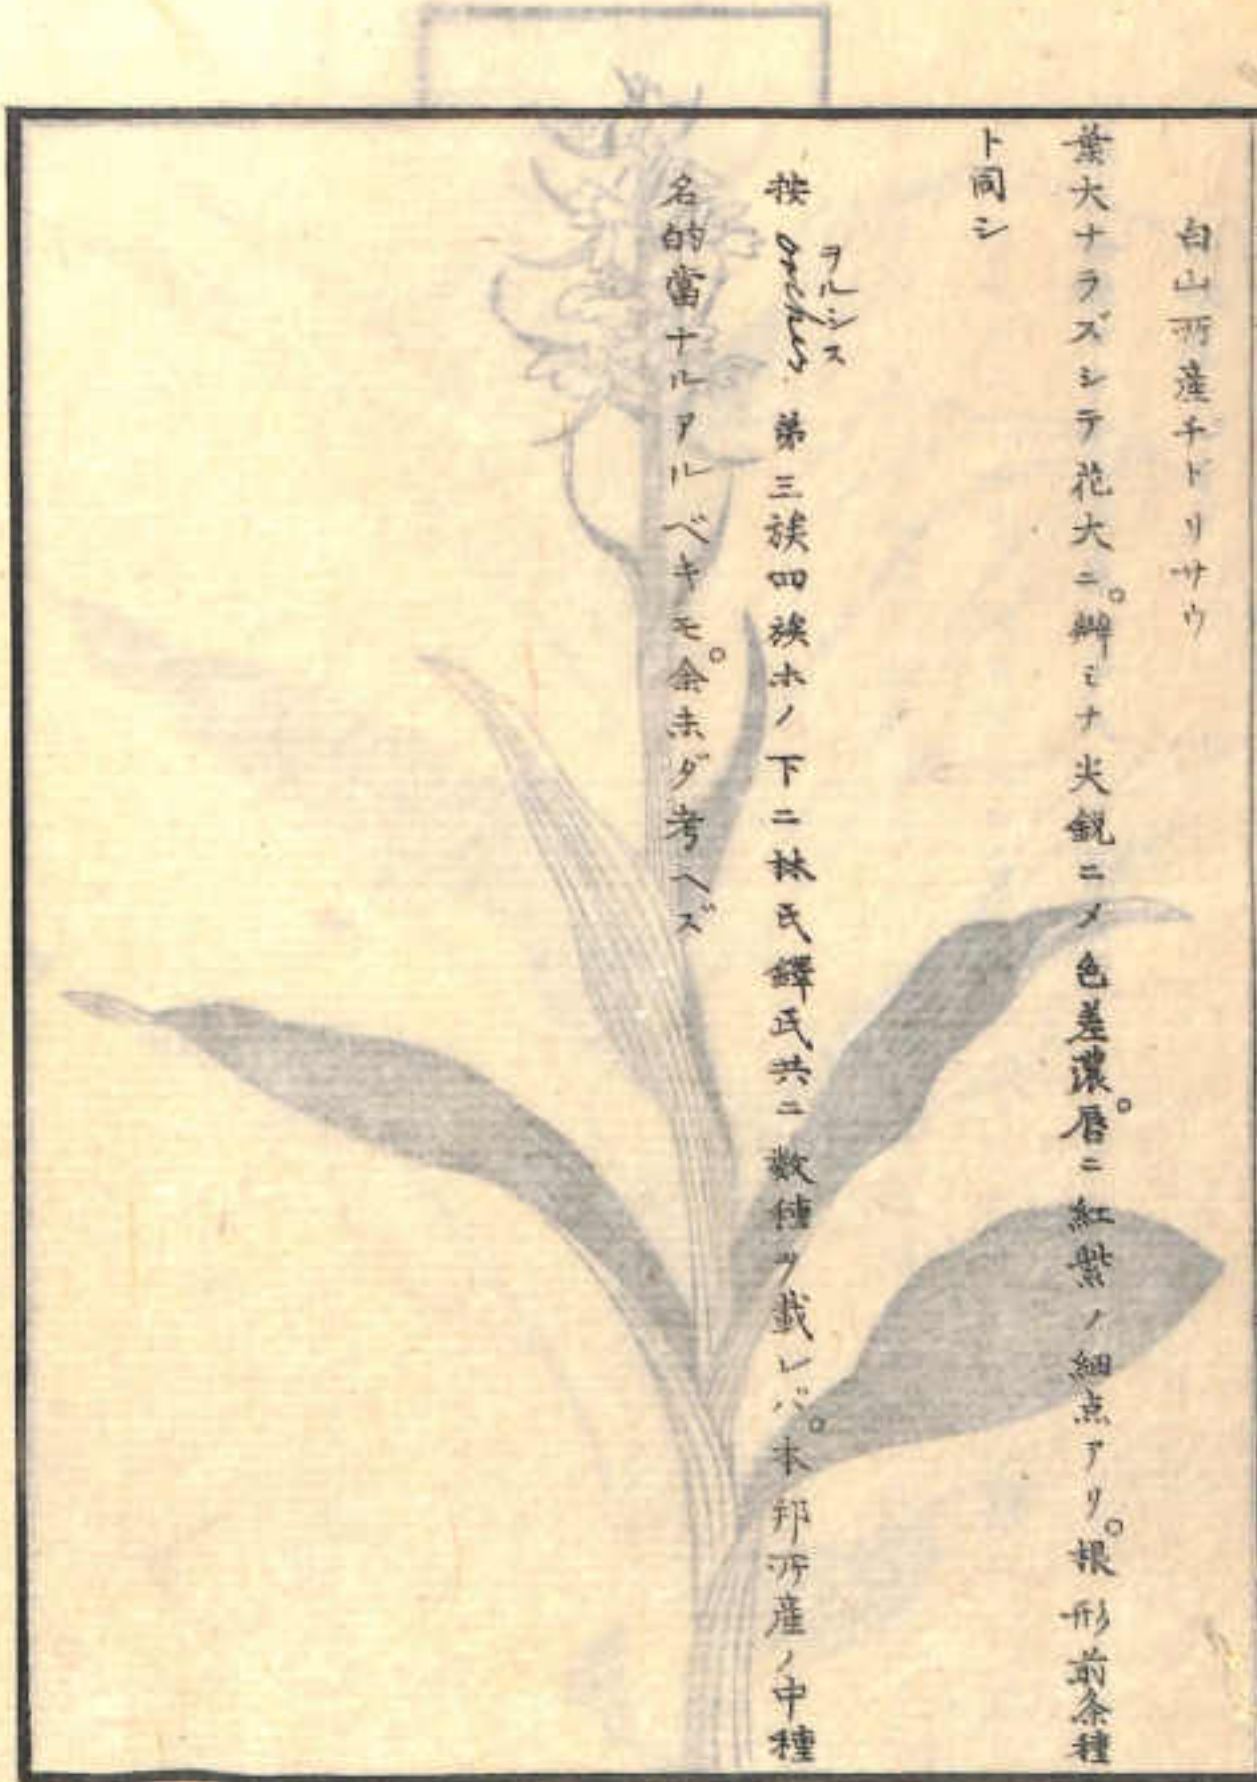 白山所産チドリサウ
葉大ナラズシテ花大ニ。瓣ミナ尖鋭ニメ色差濃。唇ニ紅紫ノ細点アリ。根形前条種
ト同シ
按 orchis ヲルシス 第三族四族ホノ下ニ林氏鐸氏共ニ数種ヲ載レバ。本邦所産ノ中種
名的當ナルアルベキモ。余未ダ考ヘズ